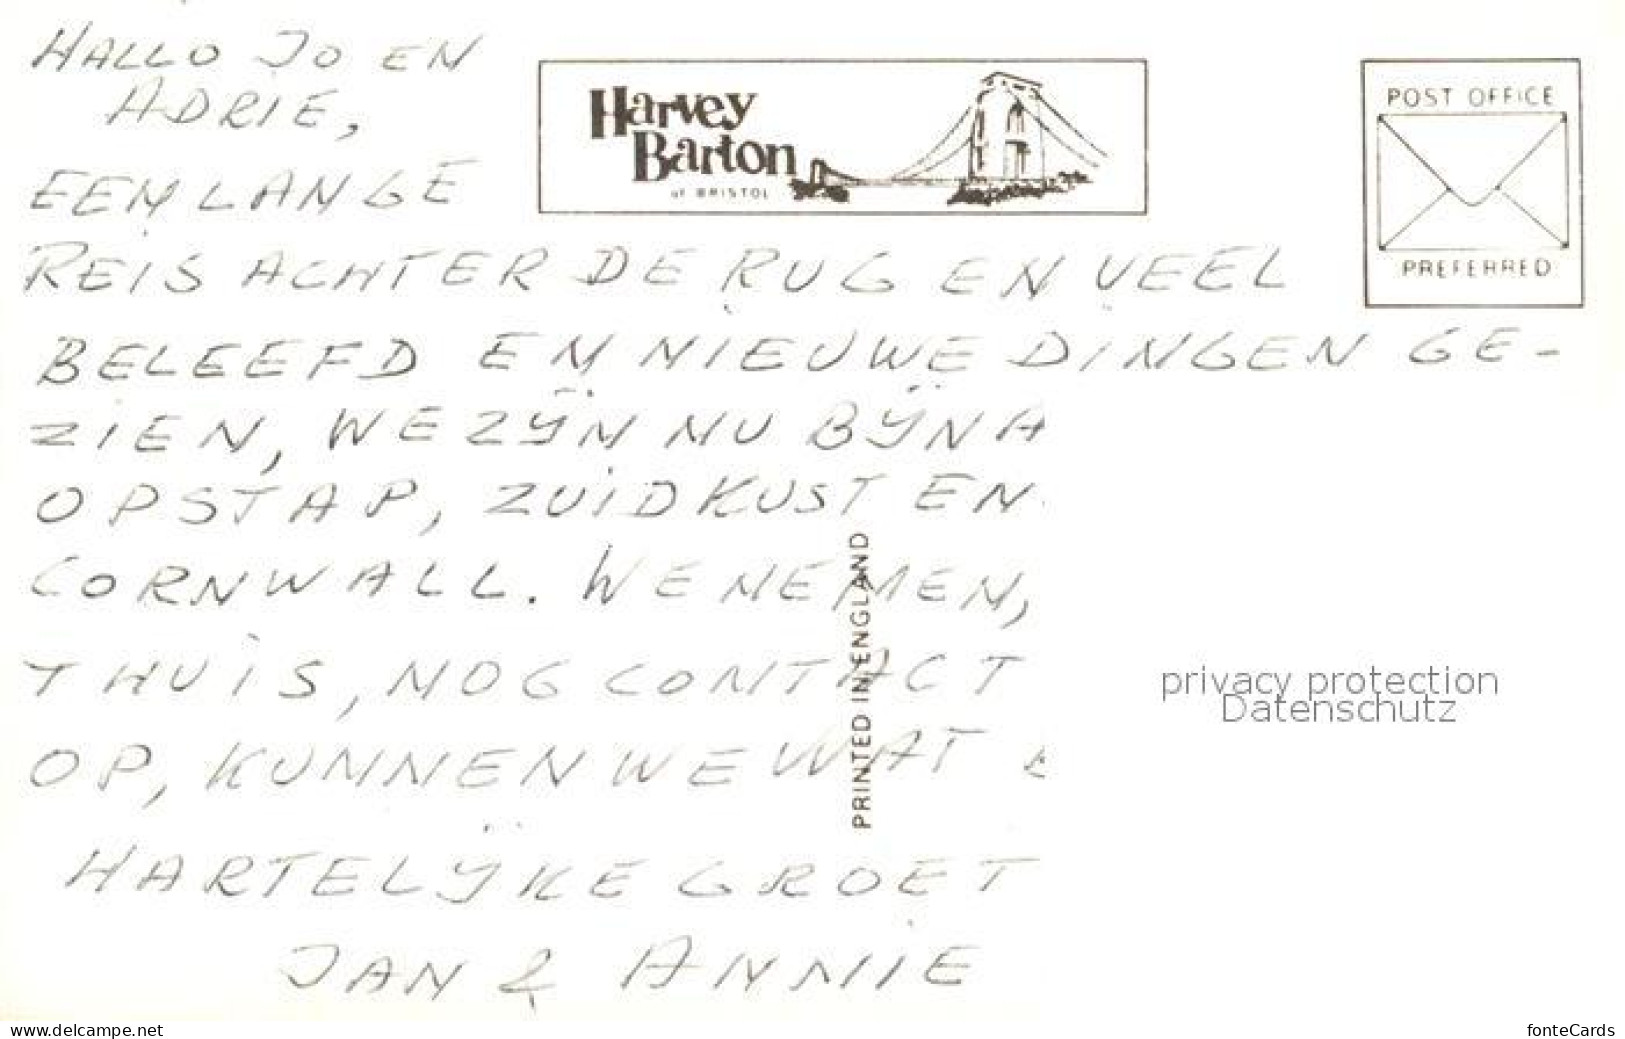 HALLO JO EN
ADRIE,
EEN LANGE
REIS ACHTER DE RUG EN VEEL
BELEEFD EN NIEUWE DINGEN GE-
ZIEN, WE ZIJN NU BIJNA
OPSTAP, ZUIDKUST EN
CORNWALL. WE NEMEN,
THUIS, NOG CONTACT
OP, KUNNEN WE WAT
HARTELIJKE GROET
JAN & ANNIE
Harvey
Barton
of BRISTOL
POST OFFICE
PREFERRED
PRINTED IN ENGLAND
privacy protection
Datenschutz
www.delcampe.net
fonteCards